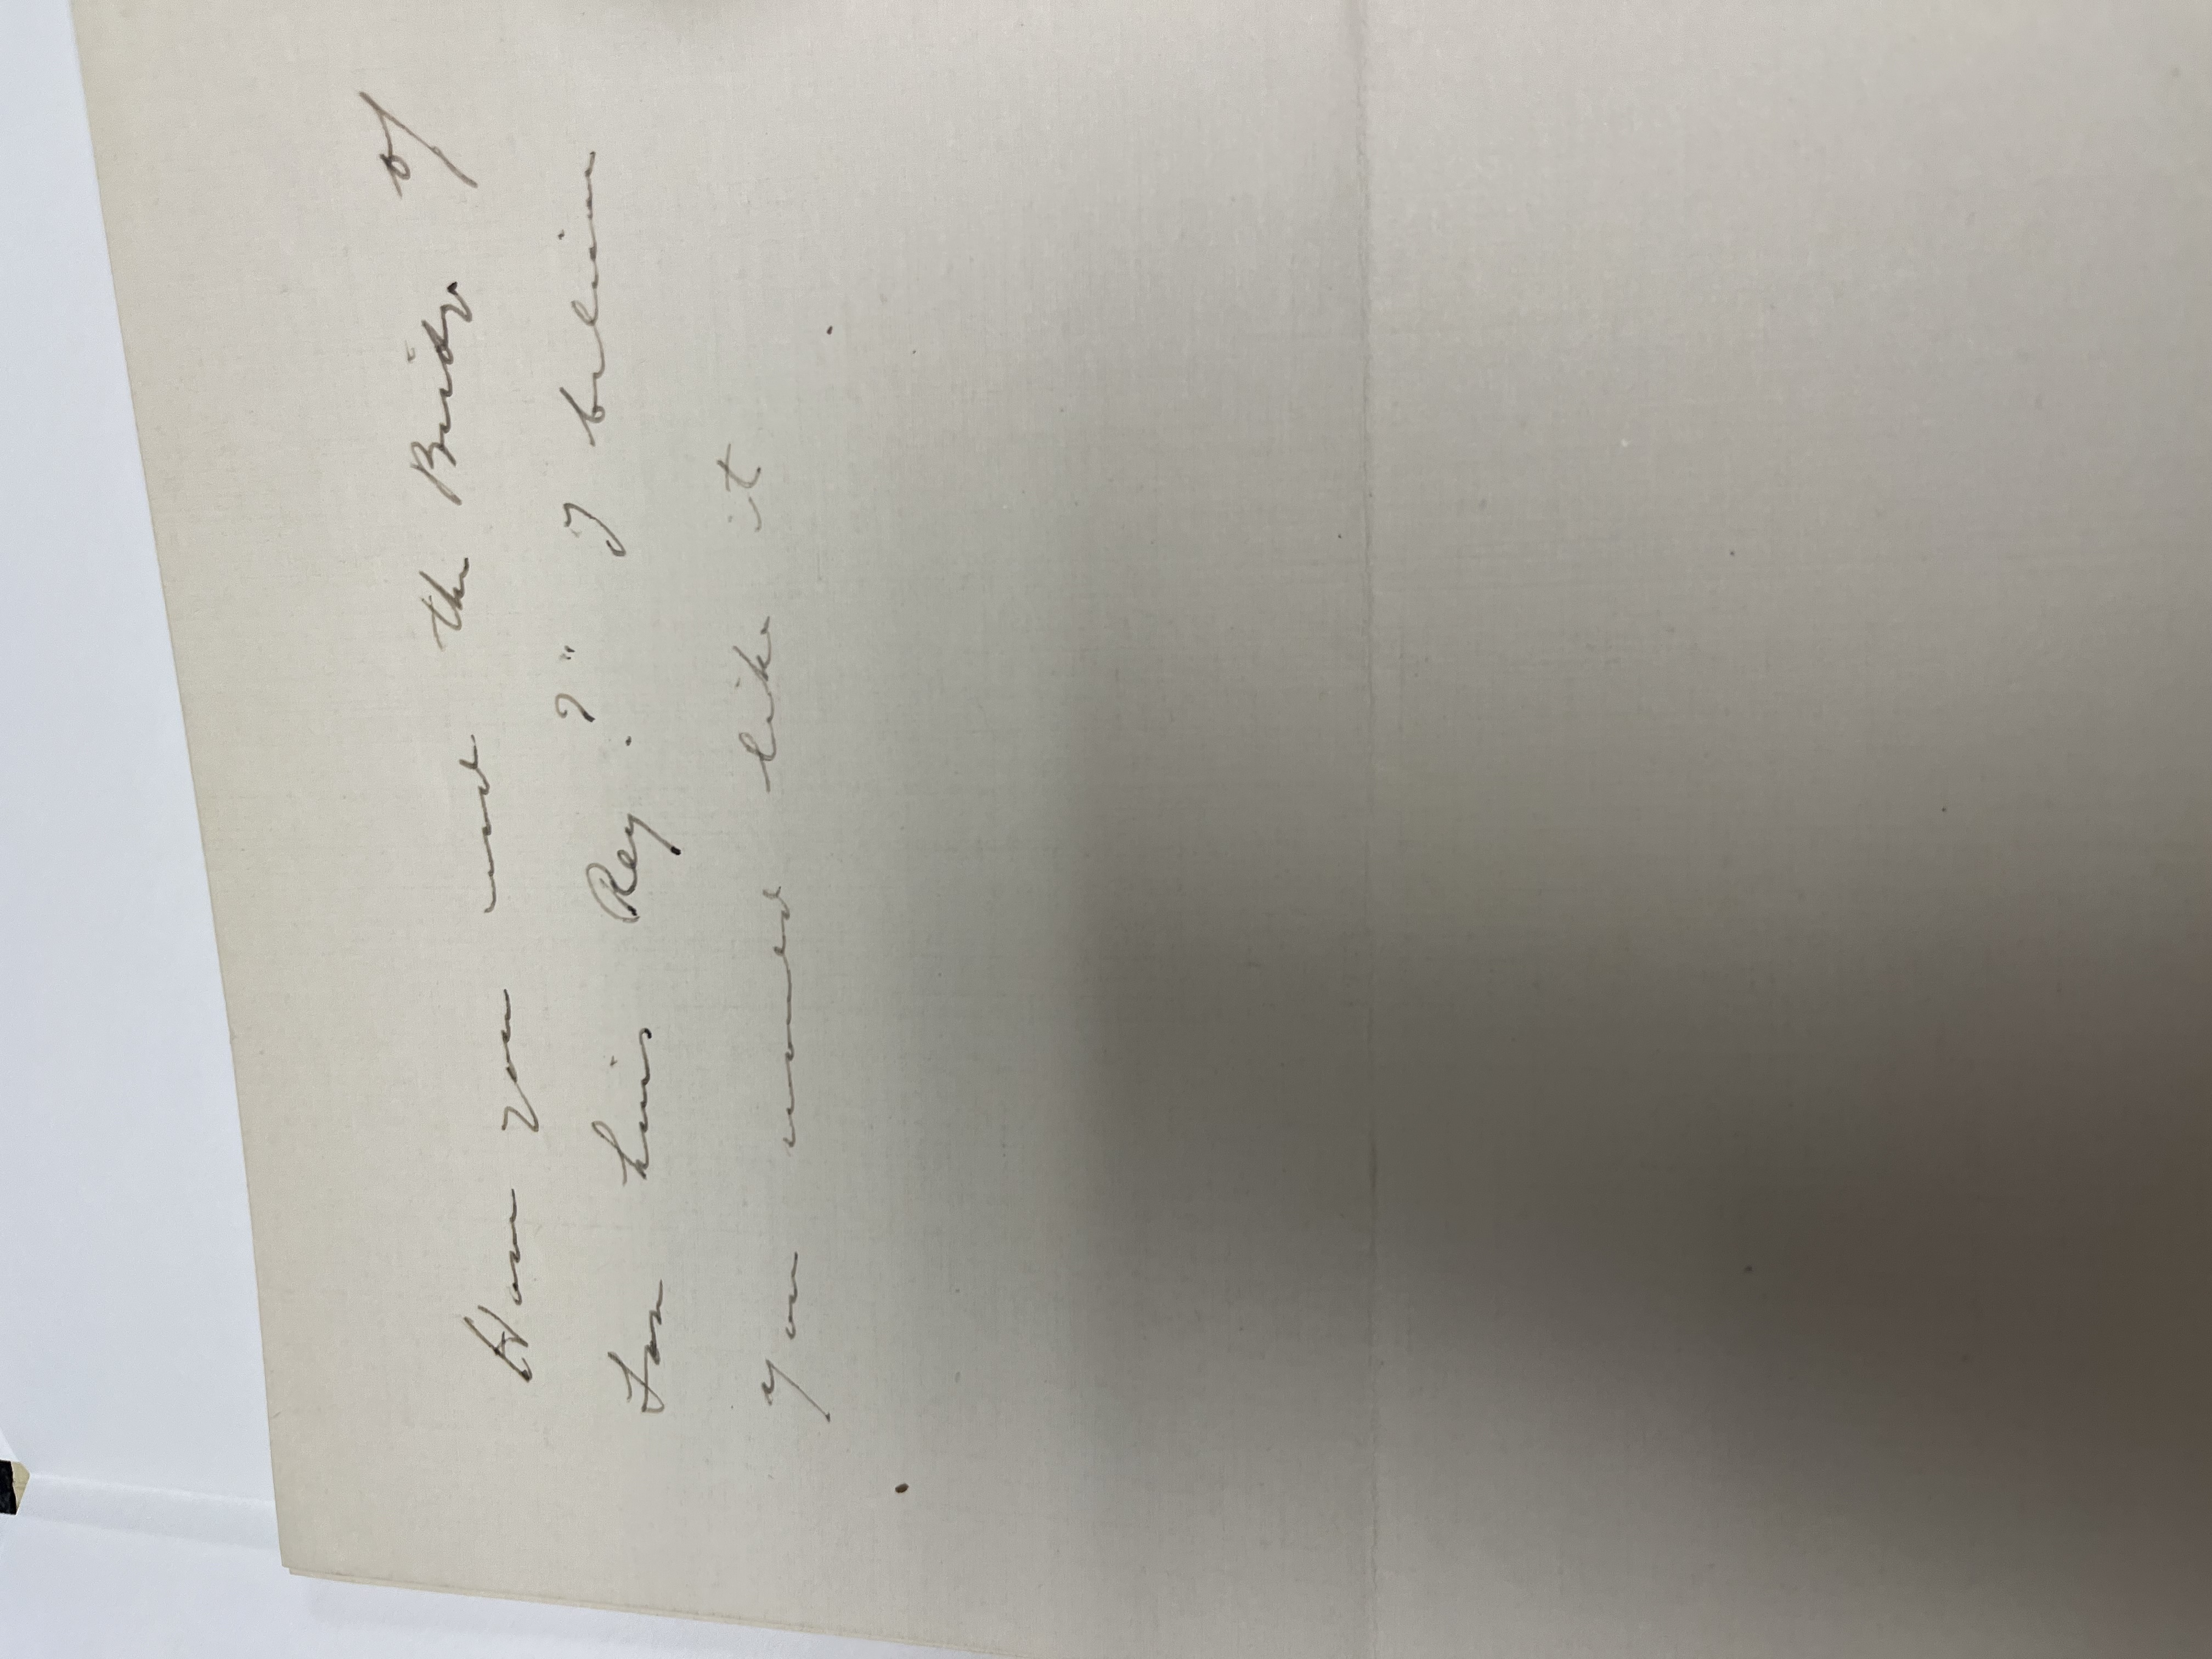 Have you read the Bridge of
San Luis Rey?" I believe
you would like it